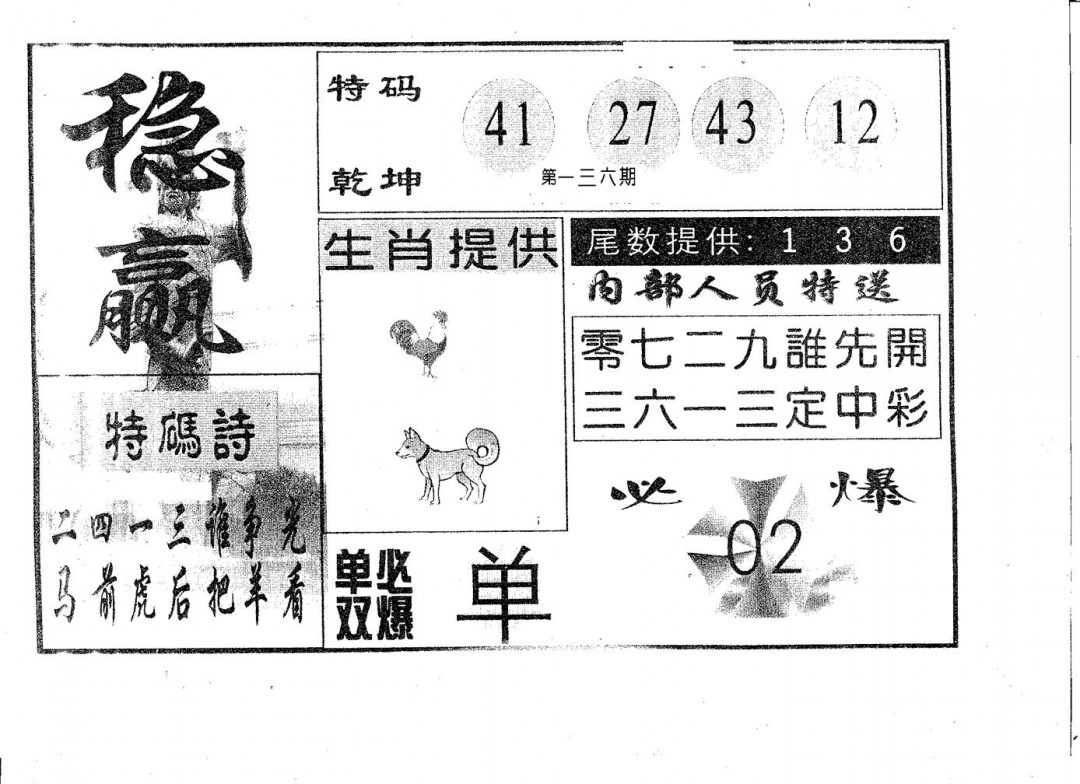 稳
赢
特码
41 27 43 12
乾坤
第一三六期
生肖提供
尾数提供: 1 3 6
内部人员特送
零七二九誰先開
三六一三定中彩
特碼詩
二四一三谁争光
马前虎后把羊看
必爆
02
单双
必爆
单